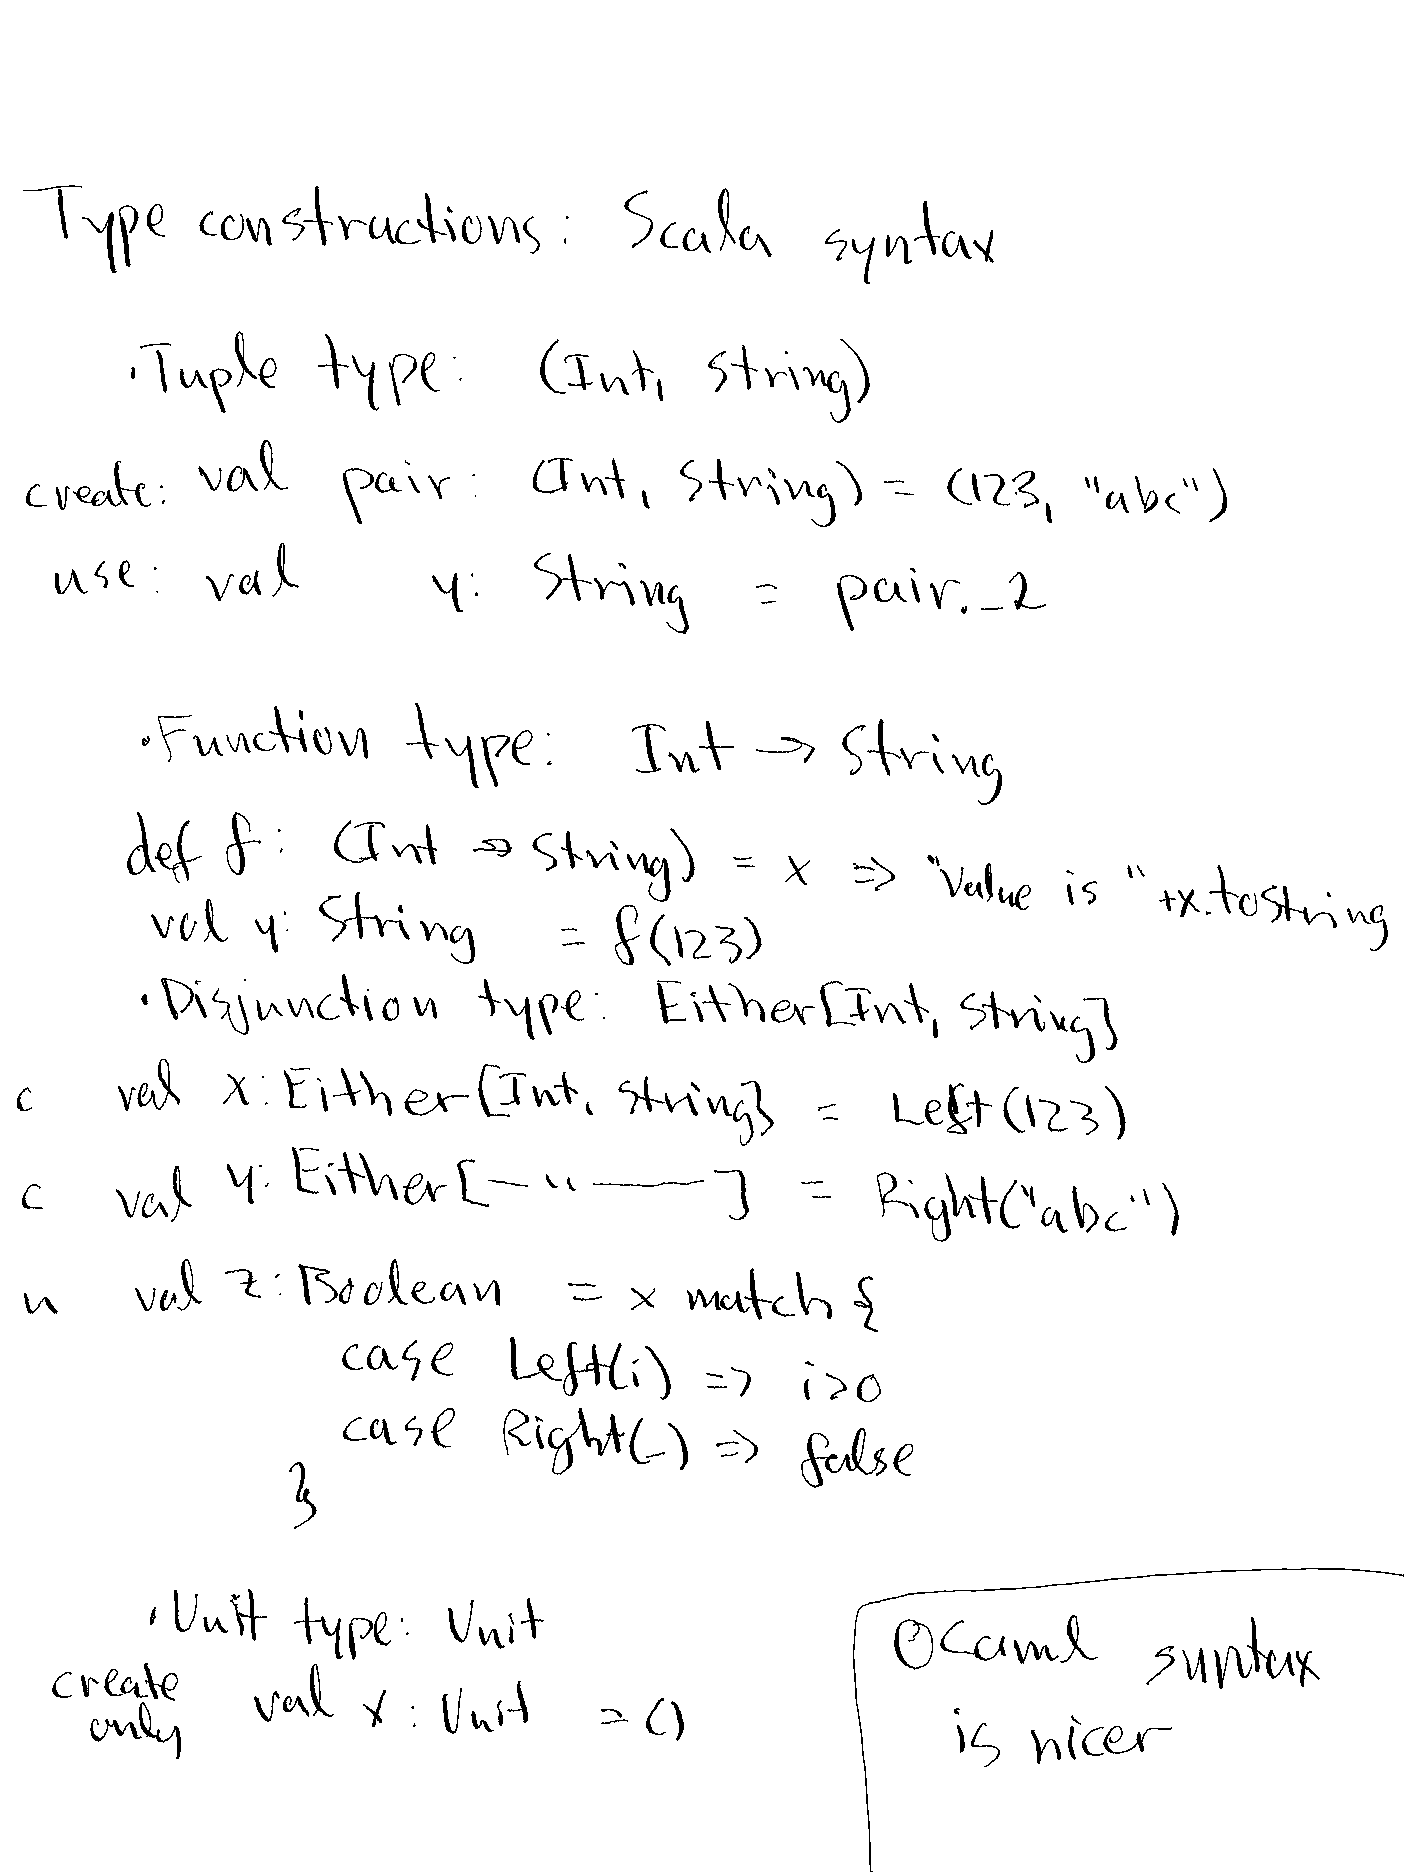 Type constructions: Scala syntax
·Tuple type: (Int, String)
create: val pair: (Int, String) = (123, "abc")
use: val y: String = pair._2
·Function type: Int => String
def f: (Int => String) = x => "Value is " +x.toString
val y: String = f(123)
·Disjunction type: Either[Int, String]
c val x: Either[Int, String] = Left(123)
c val y: Either[—"——] = Right("abc")
u val z: Boolean = x match {
case Left(i) => i>0
case Right(_) => false
}
·Unit type: Unit
create only val x: Unit = ()
OCaml syntax
is nicer